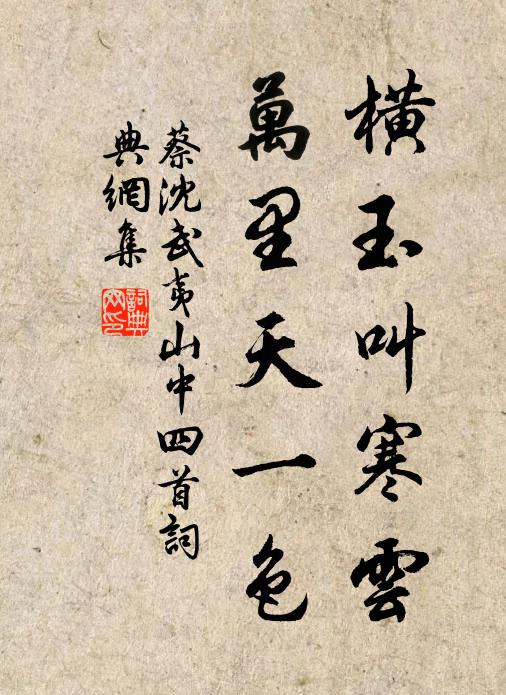 橫玉叫寒雲
萬里天一色
蔡沈武夷山中四首詞
典網集
詞典
网印